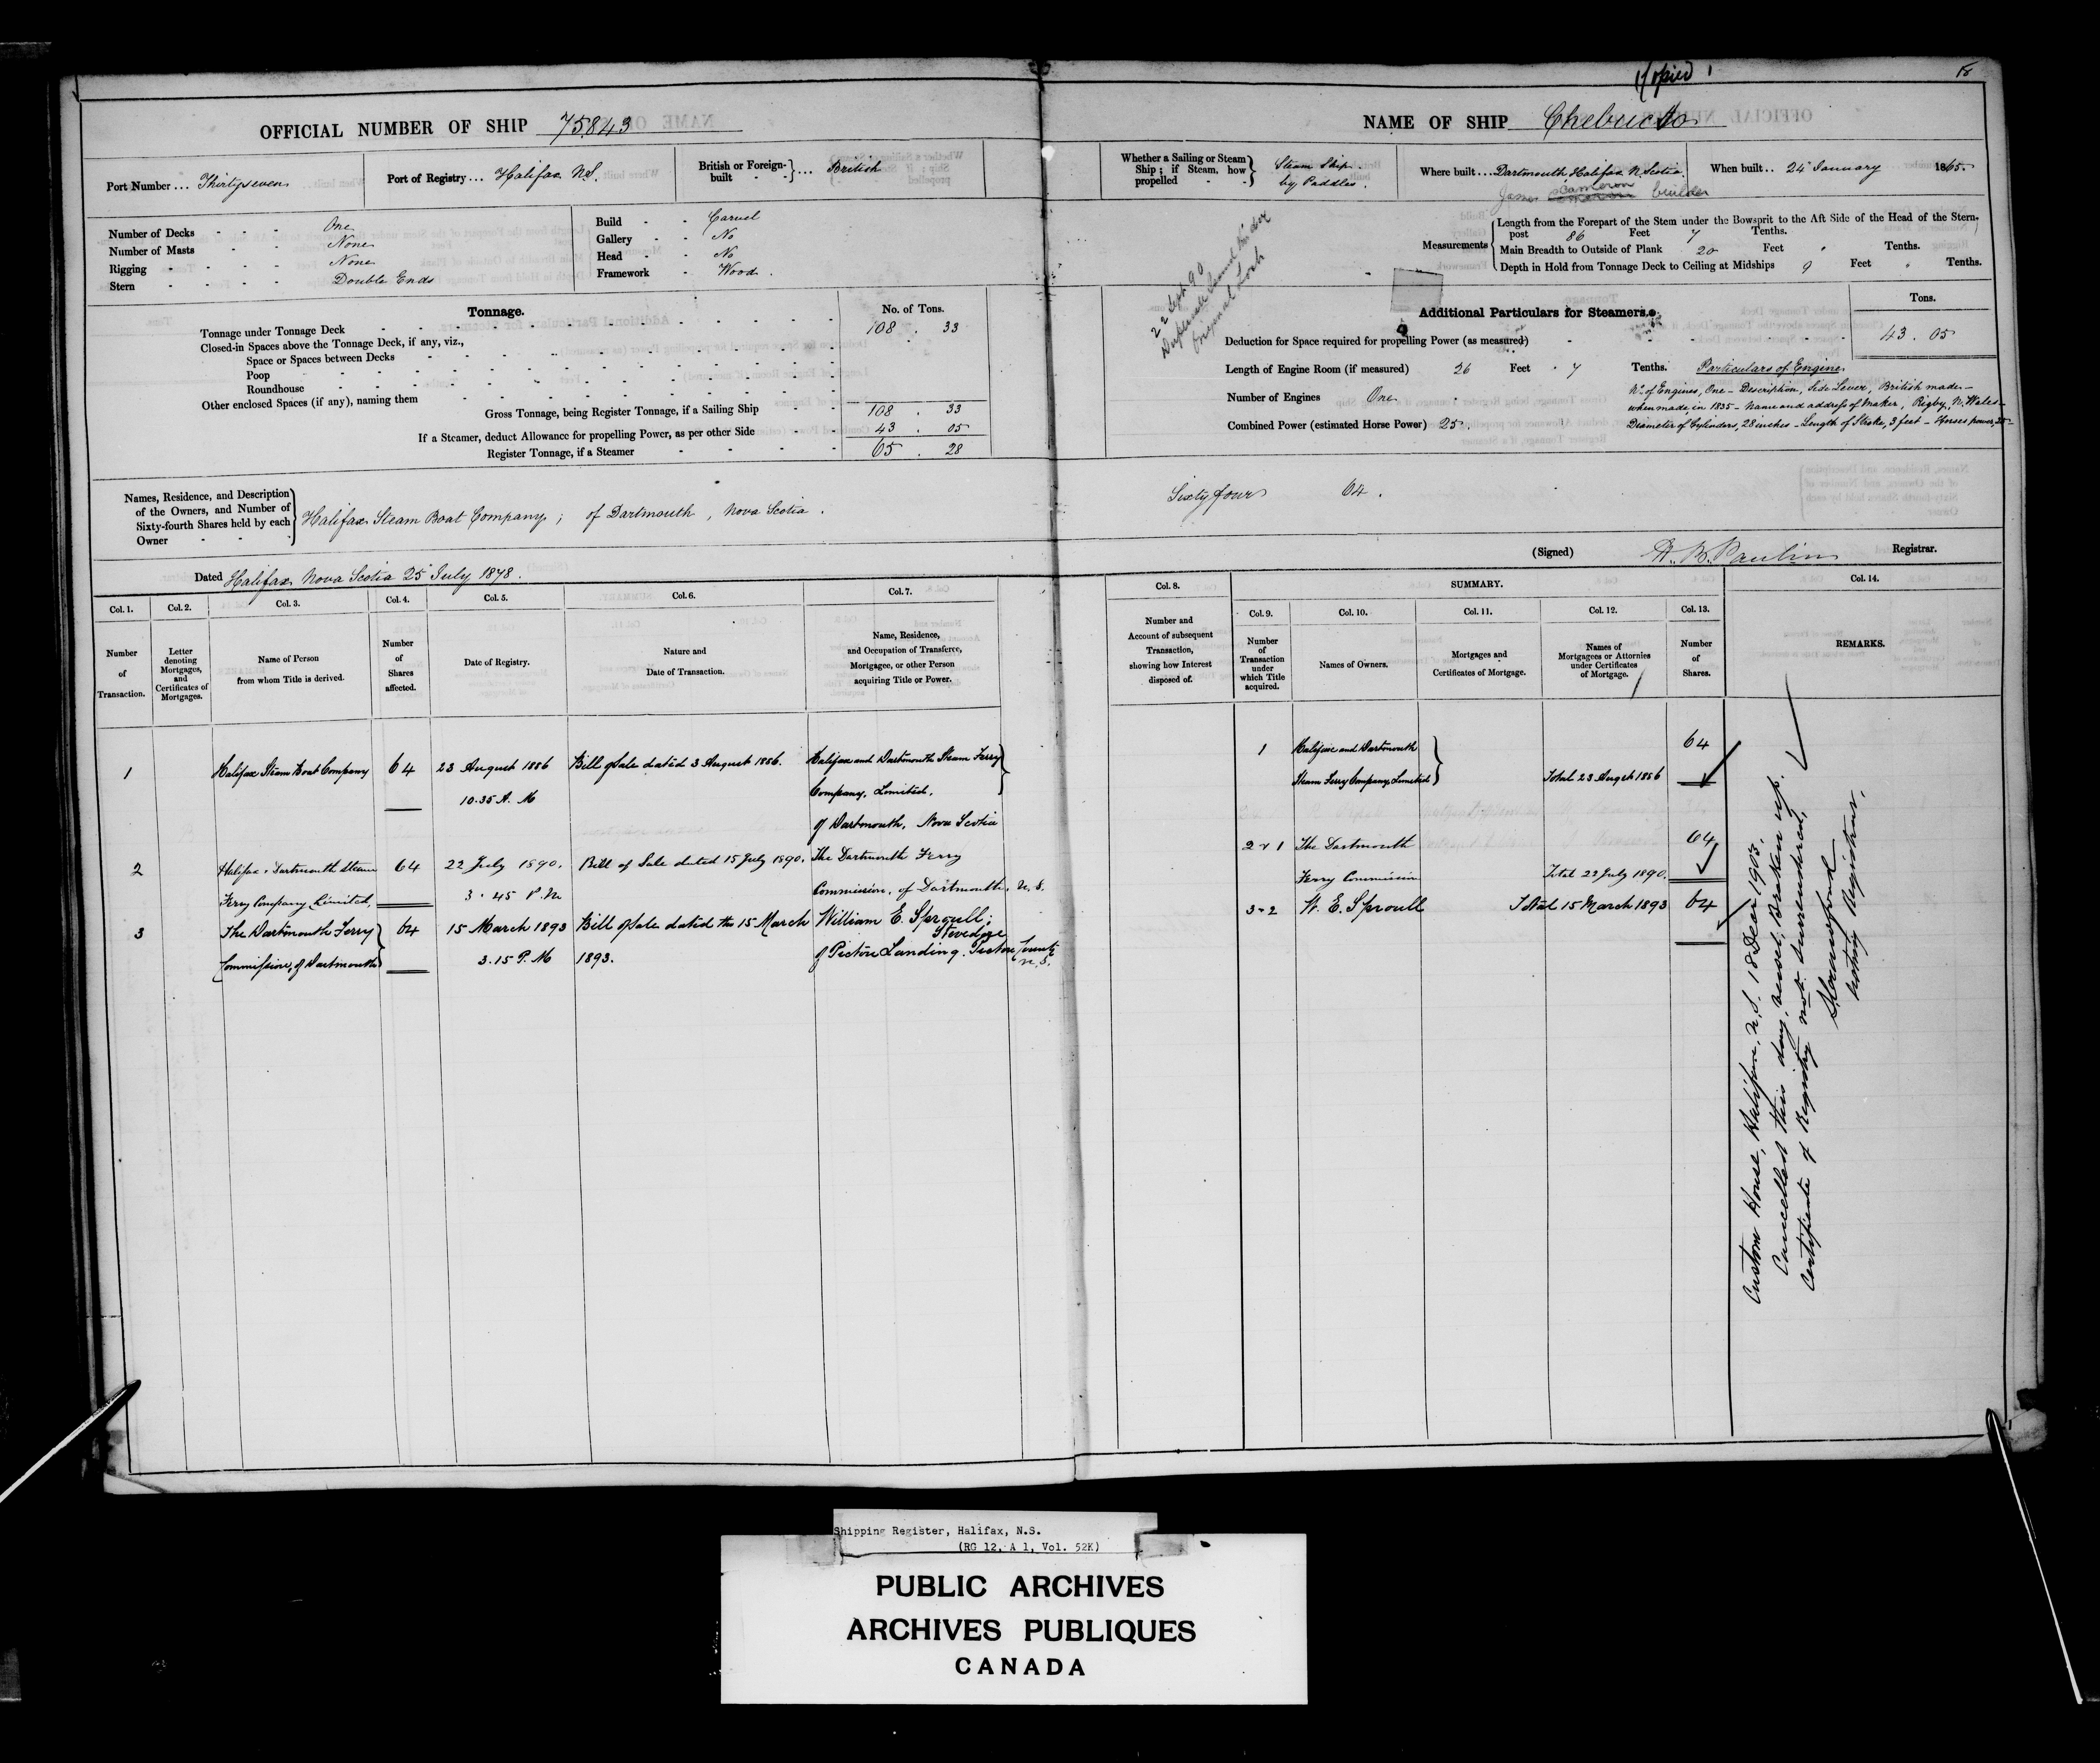 Copied
18
OFFICIAL NUMBER OF SHIP 75843
NAME OF SHIP Chebucto
Port Number ... Thirtyseven
Port of Registry ... Halifax N.S.
British or Foreign-built - - } ... British
Whether a Sailing or Steam Ship; if Steam, how propelled - - } Steam Ship by Paddles.
Where built ... Dartmouth, Halifax N. Scotia.
James Cameron builder
When built .. 24 January 1865
Number of Decks - - - One
Number of Masts - - None
Rigging - - - - None
Stern - - - - Double Ends
Build - - Carvel
Gallery - - No
Head - - No
Framework - Wood.
Measurements
Length from the Forepart of the Stem under the Bowsprit to the Aft Side of the Head of the Stern-
post 86 Feet 7 Tenths.
Main Breadth to Outside of Plank 20 Feet " Tenths.
Depth in Hold from Tonnage Deck to Ceiling at Midships 9 Feet " Tenths.
22 Sept 90
Duplicate issued under
Original Lost
Tonnage.
No. of Tons.
Tonnage under Tonnage Deck 108 . 33
Closed-in Spaces above the Tonnage Deck, if any, viz.,
Space or Spaces between Decks
Poop
Roundhouse
Other enclosed Spaces (if any), naming them
Gross Tonnage, being Register Tonnage, if a Sailing Ship 108 . 33
If a Steamer, deduct Allowance for propelling Power, as per other Side 43 . 05
Register Tonnage, if a Steamer 65 . 28
Additional Particulars for Steamers.
Tons.
Deduction for Space required for propelling Power (as measured) 43 . 05
Length of Engine Room (if measured) 26 Feet . 7 Tenths.
Number of Engines One
Combined Power (estimated Horse Power) 25.
Particulars of Engine
No. of Engines, One – Description, Side Lever, British made –
when made, in 1835 – Name and address of Maker, Rigby, N. Wales –
Diameter of Cylinders, 28 inches – Length of Stroke, 3 feet – Horses power, 25 –
Names, Residence, and Description
of the Owners, and Number of
Sixty-fourth Shares held by each
Owner - - -
Halifax Steam Boat Company; of Dartmouth, Nova Scotia.
Sixty four 64.
Dated Halifax Nova Scotia 25 July 1878.
(Signed) H. B. Paulin Registrar.
Col. 1. Col. 2. Col. 3. Col. 4. Col. 5. Col. 6. Col. 7.
Number of Transaction.
Letter denoting Mortgages, and Certificates of Mortgages.
Name of Person from whom Title is derived.
Number of Shares affected.
Date of Registry.
Nature and Date of Transaction.
Name, Residence, and Occupation of Transferee, Mortgagee, or other Person acquiring Title or Power.
1 Halifax Steam Boat Company 64 23 August 1886 Bill of Sale dated 3 August 1886. Halifax and Dartmouth Steam Ferry
10.35 A.M Company, Limited,
of Dartmouth, Nova Scotia
2 Halifax & Dartmouth Steam 64 22 July 1890. Bill of Sale dated 15 July 1890. The Dartmouth Ferry
Ferry Company Limited, 3.45 P.M Commission, of Dartmouth, N.S.
3 The Dartmouth Ferry 64 15 March 1893 Bill of Sale dated the 15 March William E. Sproull; Stevedore
Commission, of Dartmouth 3.15 P.M 1893. of Pictou Landing. Pictou County N.S.
Col. 8. SUMMARY. Col. 14.
Col. 9. Col. 10. Col. 11. Col. 12. Col. 13.
Number and Account of subsequent Transaction, showing how Interest disposed of.
Number of Transaction under which Title acquired.
Names of Owners.
Mortgages and Certificates of Mortgage.
Names of Mortgagees or Attornies under Certificates of Mortgage.
Number of Shares.
REMARKS.
1 Halifax and Dartmouth 64
Steam Ferry Company, Limited Total 23 Augst 1886
2 & 1 The Dartmouth 64
Ferry Commission Total 22 July 1890.
3 - 2 W. E. Sproull Total 15 March 1893 64
Custom House, Halifax, N.S. 18 Decr 1903.
Cancelled this day, vessel Broken up.
Certificate of Registry not surrendered,
Acting Registrar.
Shipping Register, Halifax, N.S.
(RG 12, A 1, Vol. 52K)
PUBLIC ARCHIVES
ARCHIVES PUBLIQUES
CANADA